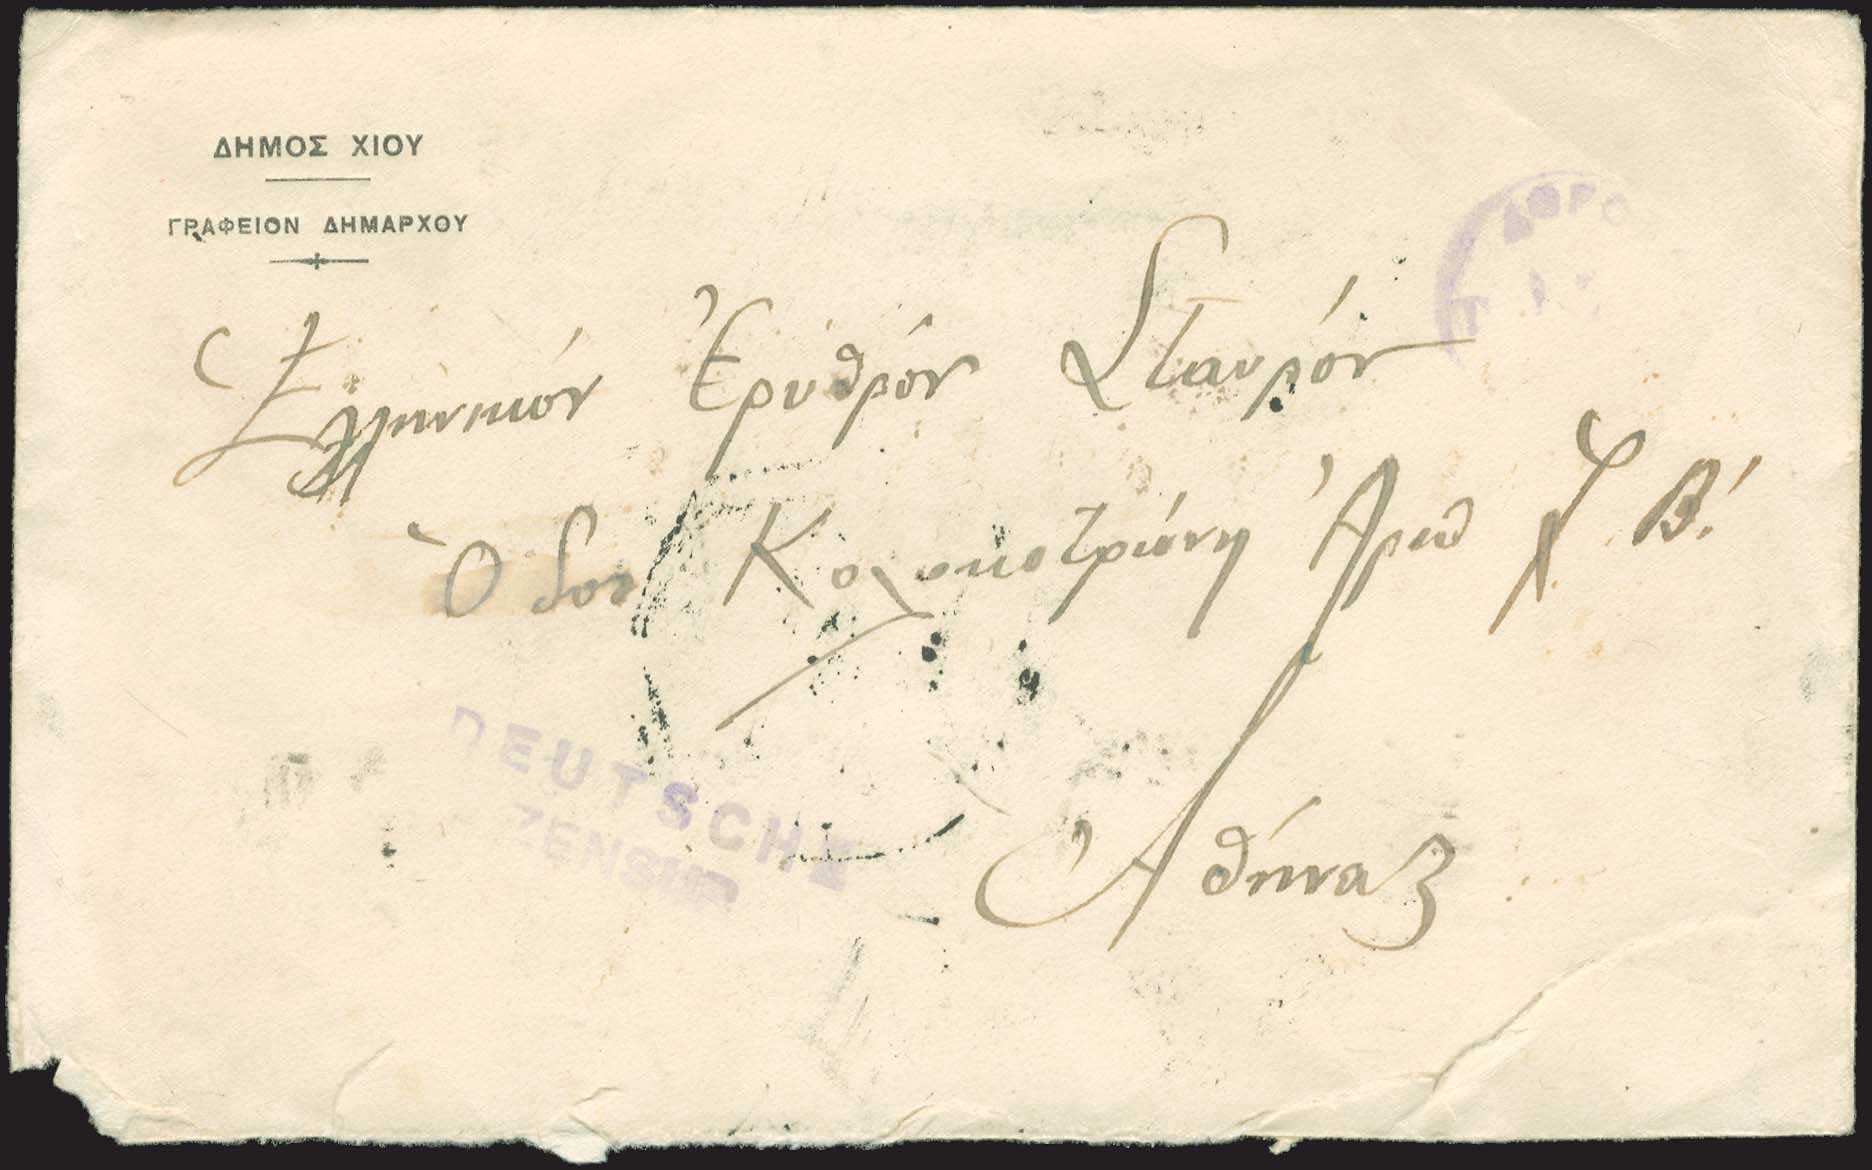 ΔΗΜΟΣ ΧΙΟΥ
ΓΡΑΦΕΙΟΝ ΔΗΜΑΡΧΟΥ
Ἑλληνικόν Ἐρυθρόν Σταυρόν
Ὁδον Κολοκοτρώνη Ἀριθ Β!
Ἀθήνας
DEUTSCHE
ZENSUR